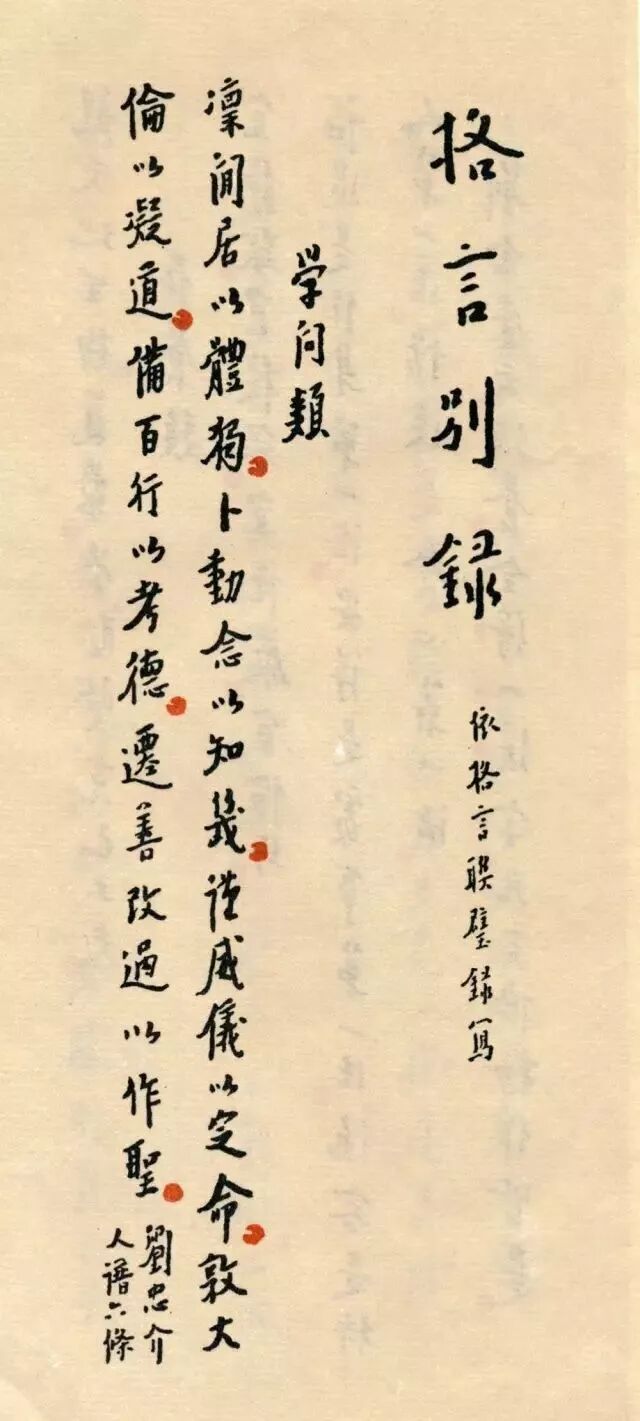 格言别録
依格言聨璧録寫
学问類
凜閒居以體獨卜動念以知幾谨威儀以定命敦大
倫以凝道備百行以考德遷善改過以作聖
劉忠介
人谱六條